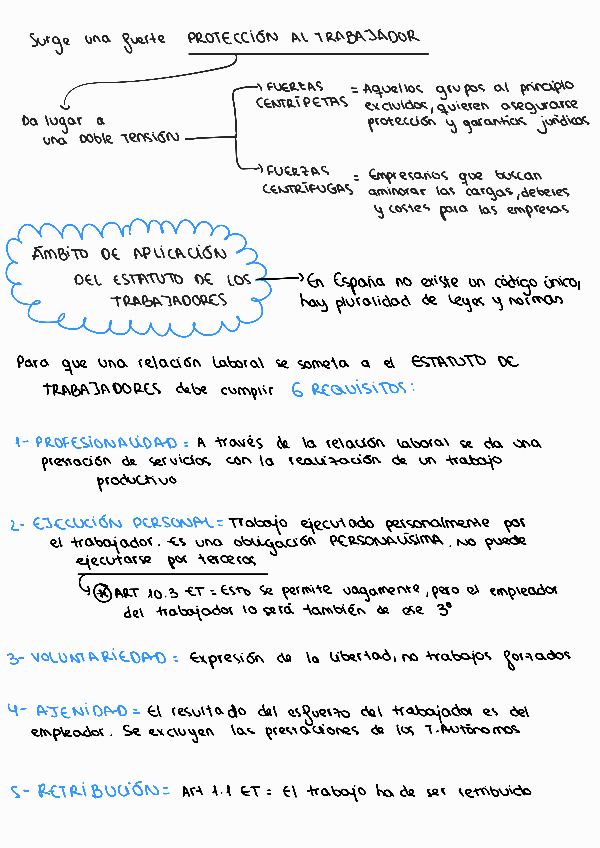 Surge una fuerte PROTECCIÓN AL TRABAJADOR
Da lugar a
una DOBLE TENSIÓN
FUERZAS
CENTRÍPETAS
= Aquellos grupos al principio
excluidos, quieren asegurarse
protección y garantías jurídicas
FUERZAS
CENTRÍFUGAS
= Empresarios que buscan
aminorar las cargas, deberes
y costes para las empresas
ÁMBITO DE APLICACIÓN
DEL ESTATUTO DE LOS
TRABAJADORES
En España no existe un código único,
hay pluralidad de leyes y normas
Para que una relación laboral se someta a el ESTATUTO DE
TRABAJADORES debe cumplir 6 REQUISITOS:
1- PROFESIONALIDAD = A través de la relación laboral se da una
prestación de servicios con la realización de un trabajo
productivo
2- EJECUCIÓN PERSONAL = Trabajo ejecutado personalmente por
el trabajador. Es una obligación PERSONALÍSIMA. No puede
ejecutarse por terceros
* ART 10.3 ET = Esto se permite vagamente, pero el empleador
del trabajador lo será también de ese 3º
3- VOLUNTARIEDAD = Expresión de la libertad, no trabajos forzados
4- AJENIDAD = El resultado del esfuerzo del trabajador es del
empleador. Se excluyen las prestaciones de los T. Autónomos
5- RETRIBUCIÓN = Art 1.1 ET = El trabajo ha de ser retribuido